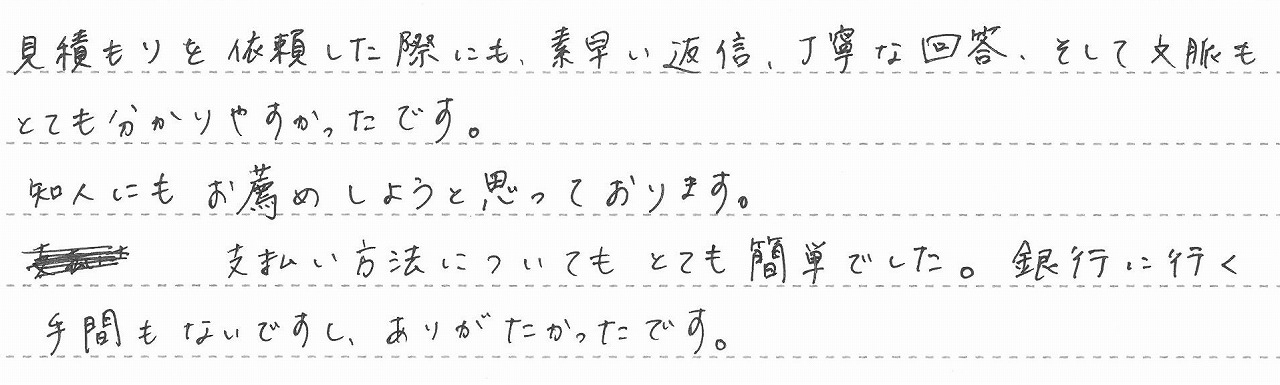 見積もりを依頼した際にも、素早い返信、丁寧な回答、そして文脈も
とても分かりやすかったです。
知人にもお薦めしようと思っております。
支払い方法についてもとても簡単でした。銀行に行く
手間もないですし、ありがたかったです。